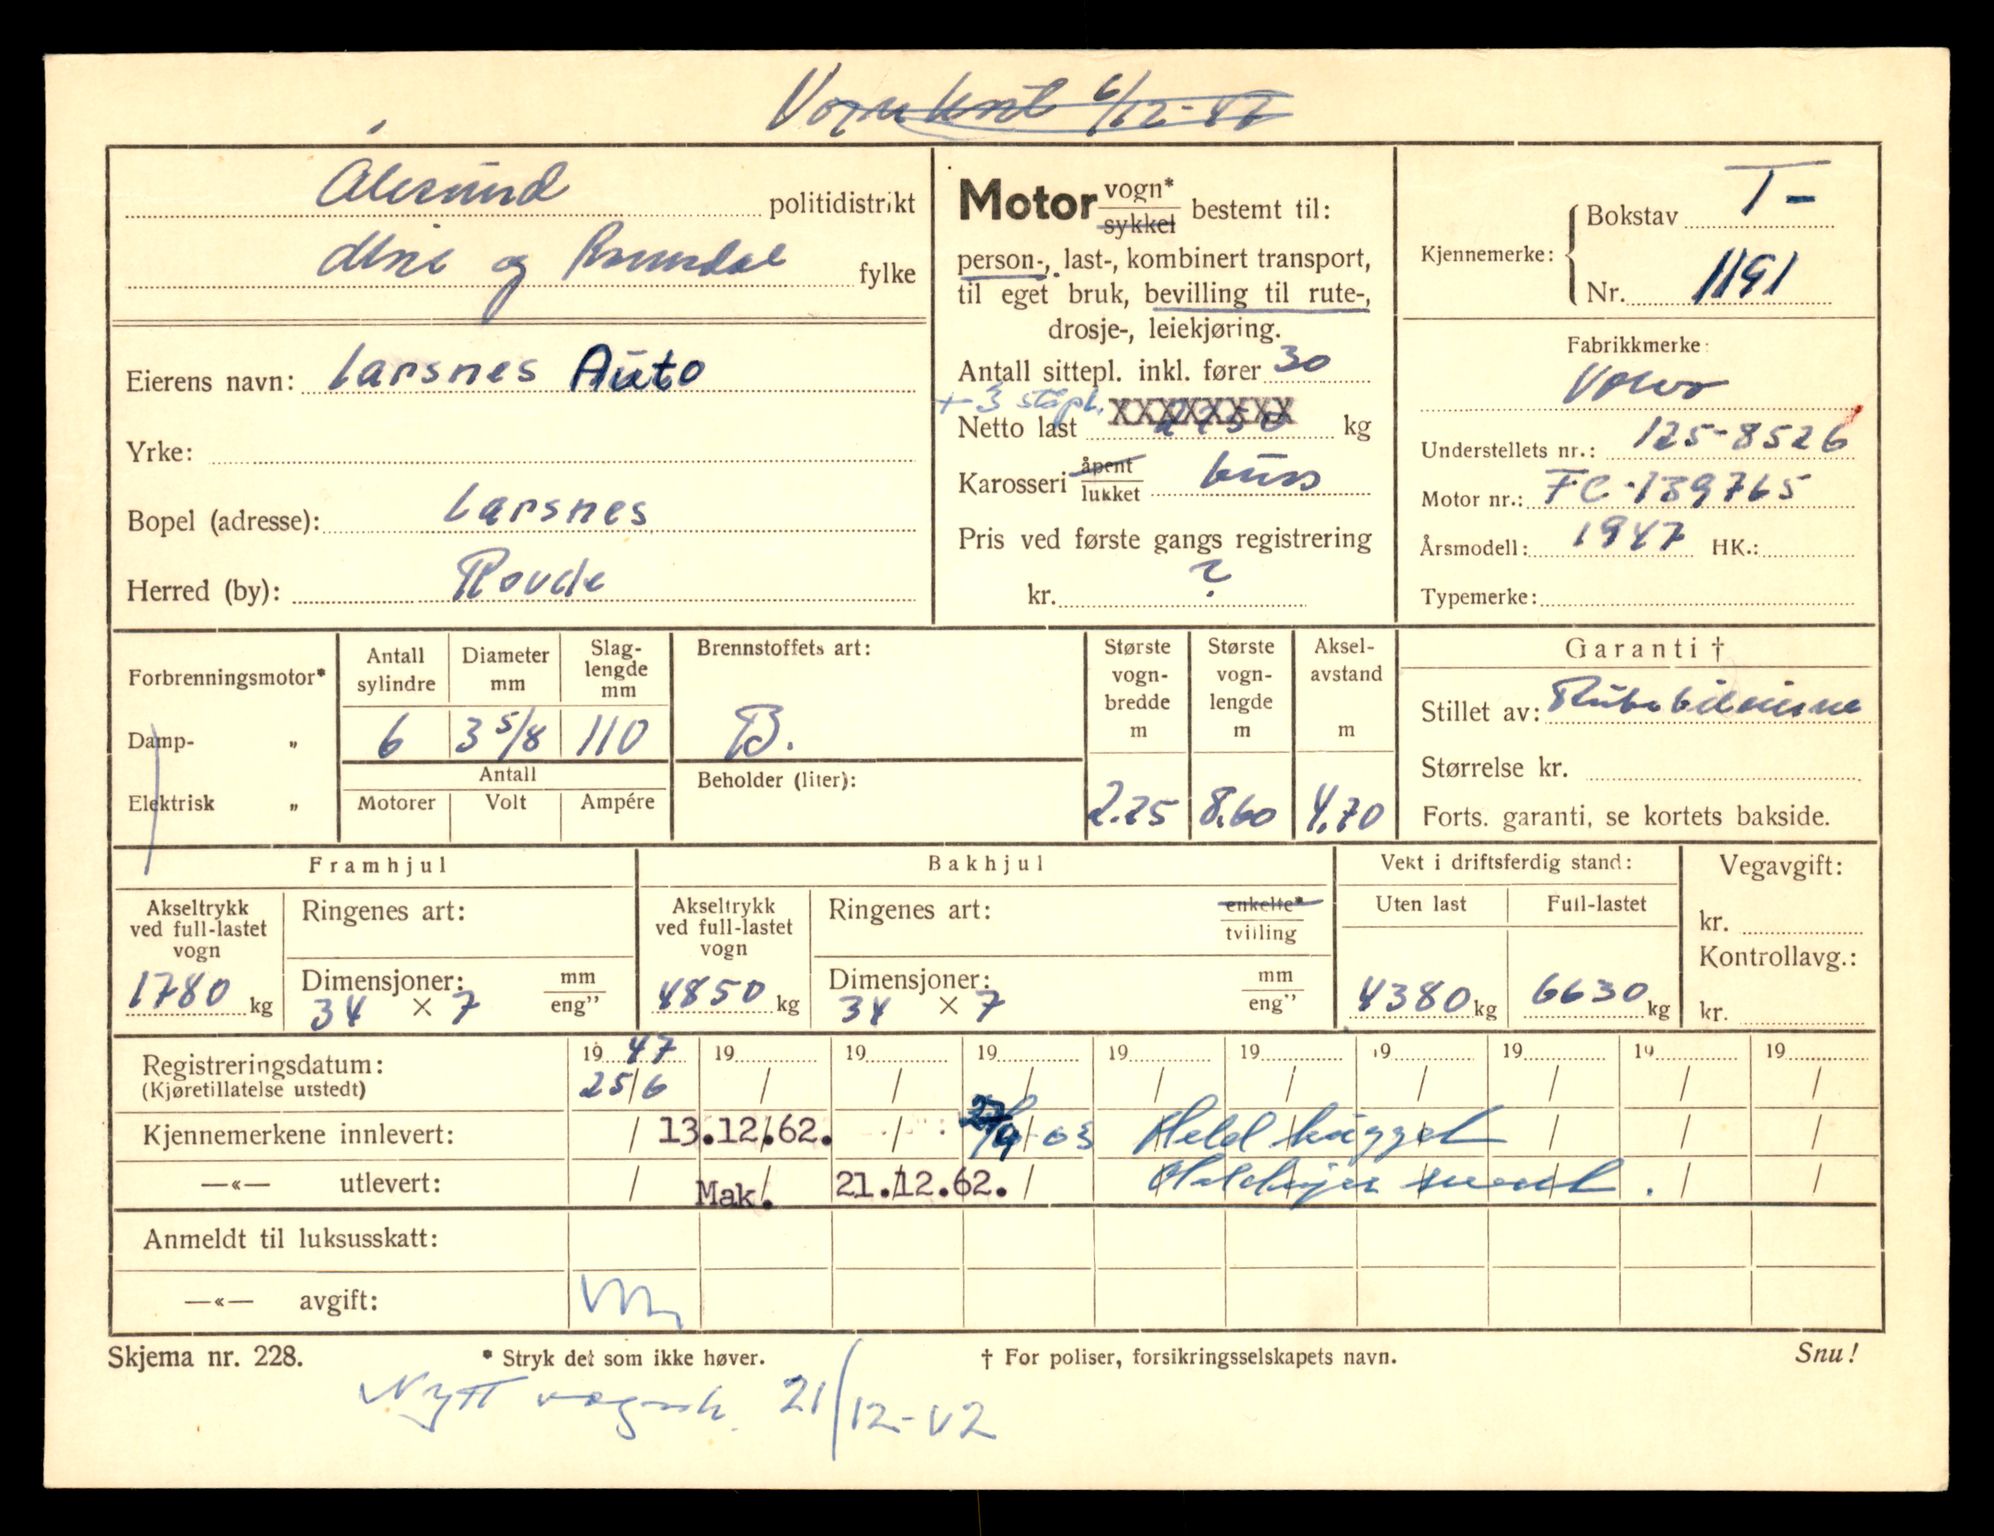 Vognkort 6/12-47
Ålesund politidistrikt
Møre og Romsdal fylke
Eierens navn: Larsnes Auto
Yrke:
Bopel (adresse): Larsnes
Herred (by): Rovde
Motor vogn* sykkel bestemt til:
person-, last-, kombinert transport,
til eget bruk, bevilling til rute-,
drosje-, leiekjøring.
Antall sittepl. inkl. fører 30
+ 3 ståpl. XXXXXXXX
Netto last 2250 kg
Karosseri åpent lukket buss
Pris ved første gangs registrering
kr. ?
Kjennemerke: Bokstav T-
Nr. 1191
Fabrikkmerke:
Volvo
Understellets nr.: 125-8526
Motor nr.: FC-139765
Årsmodell: 1947 HK.:
Typemerke:
Forbrenningsmotor*
Damp- „
Elektrisk „
Antall sylindre
Diameter mm
Slag-lengde mm
6 3 5/8 110
Antall
Motorer Volt Ampére
Brennstoffets art:
B.
Beholder (liter):
Største vogn-bredde m
2.25
Største vogn-lengde m
8.60
Aksel-avstand m
4.70
Garanti †
Stillet av: Rutebileierne
Størrelse kr.
Forts. garanti, se kortets bakside.
Framhjul
Akseltrykk ved full-lastet vogn
1780 kg
Ringenes art:
Dimensjoner: mm eng”
34 × 7
Bakhjul
Akseltrykk ved full-lastet vogn
4850 kg
Ringenes art: enkelte* tvilling
Dimensjoner: mm eng”
34 × 7
Vekt i driftsferdig stand:
Uten last Full-lastet
4380 kg 6630 kg
Vegavgift:
kr.
Kontrollavg.:
kr.
Registreringsdatum: 19 47 19 19 19 19 19 19 19 19 19
(Kjøretillatelse utstedt) 25/6 / / / / / / / / /
Kjennemerkene innlevert: / 13.12.62. / 27/9-63 Held hugget
—«— utlevert: / Mak. 21.12.62. /
Anmeldt til luksusskatt:
—«— avgift:
Skjema nr. 228. * Stryk det som ikke høver. † For poliser, forsikringsselskapets navn. Snu!
Nytt vognk. 21/12-62